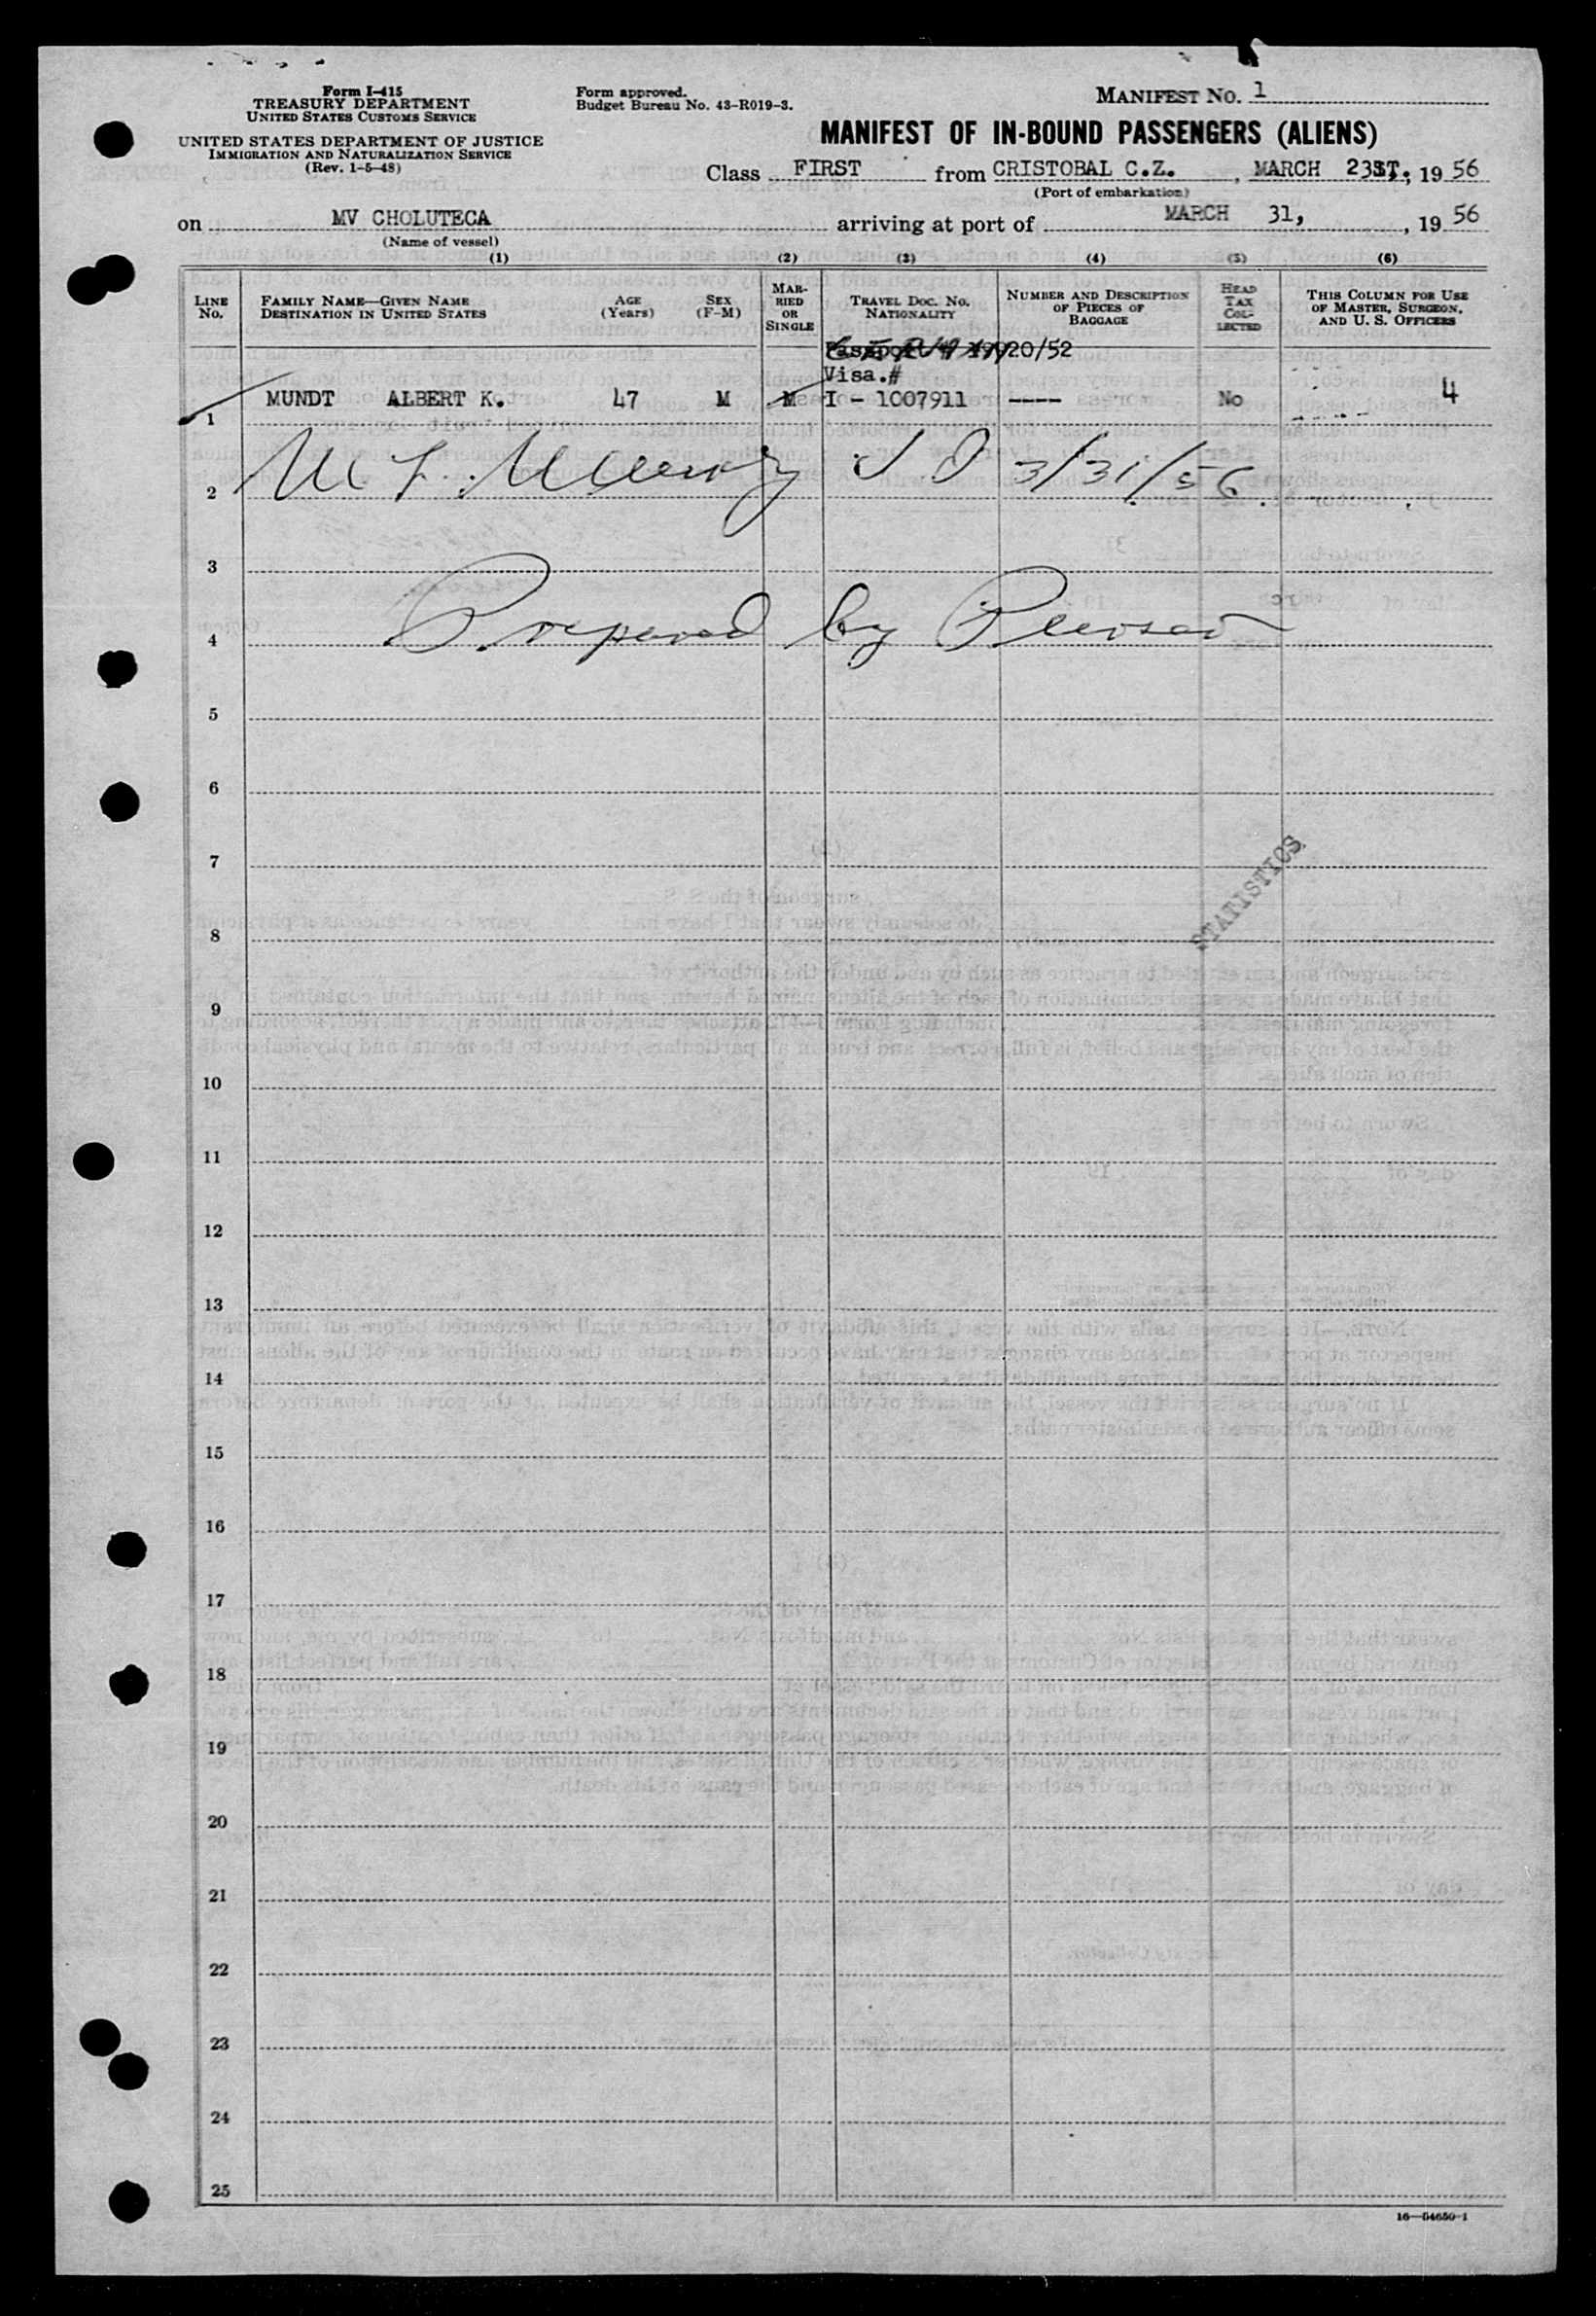 Form I-415
TREASURY DEPARTMENT
UNITED STATES CUSTOMS SERVICE
UNITED STATES DEPARTMENT OF JUSTICE
IMMIGRATION AND NATURALIZATION SERVICE
(Rev. 1-5-48)
Form approved.
Budget Bureau No. 43-R019-3.
MANIFEST NO. 1
MANIFEST OF IN-BOUND PASSENGERS (ALIENS)
Class FIRST from CRISTOBAL C.Z., MARCH 23, 1956
(Port of embarkation)
on MV CHOLUTECA arriving at port of MARCH 31, , 1956
(Name of vessel)
(1) (2) (3) (4) (5) (6)
LINE NO.
FAMILY NAME—GIVEN NAME
DESTINATION IN UNITED STATES
AGE (Years)
SEX (F-M)
MARRIED OR SINGLE
TRAVEL DOC. NO. NATIONALITY
NUMBER AND DESCRIPTION OF PIECES OF BAGGAGE
HEAD TAX COLLECTED
THIS COLUMN FOR USE OF MASTER, SURGEON, AND U. S. OFFICERS
20/52
Visa.#
1 MUNDT ALBERT K. 47 M M I - 1007911 ---- No 4
2 3/31/56
3
4 Prepared by
5
6
7
STATISTICS
8
9
10
11
12
13
14
15
16
17
18
19
20
21
22
23
24
25
16—54650-1